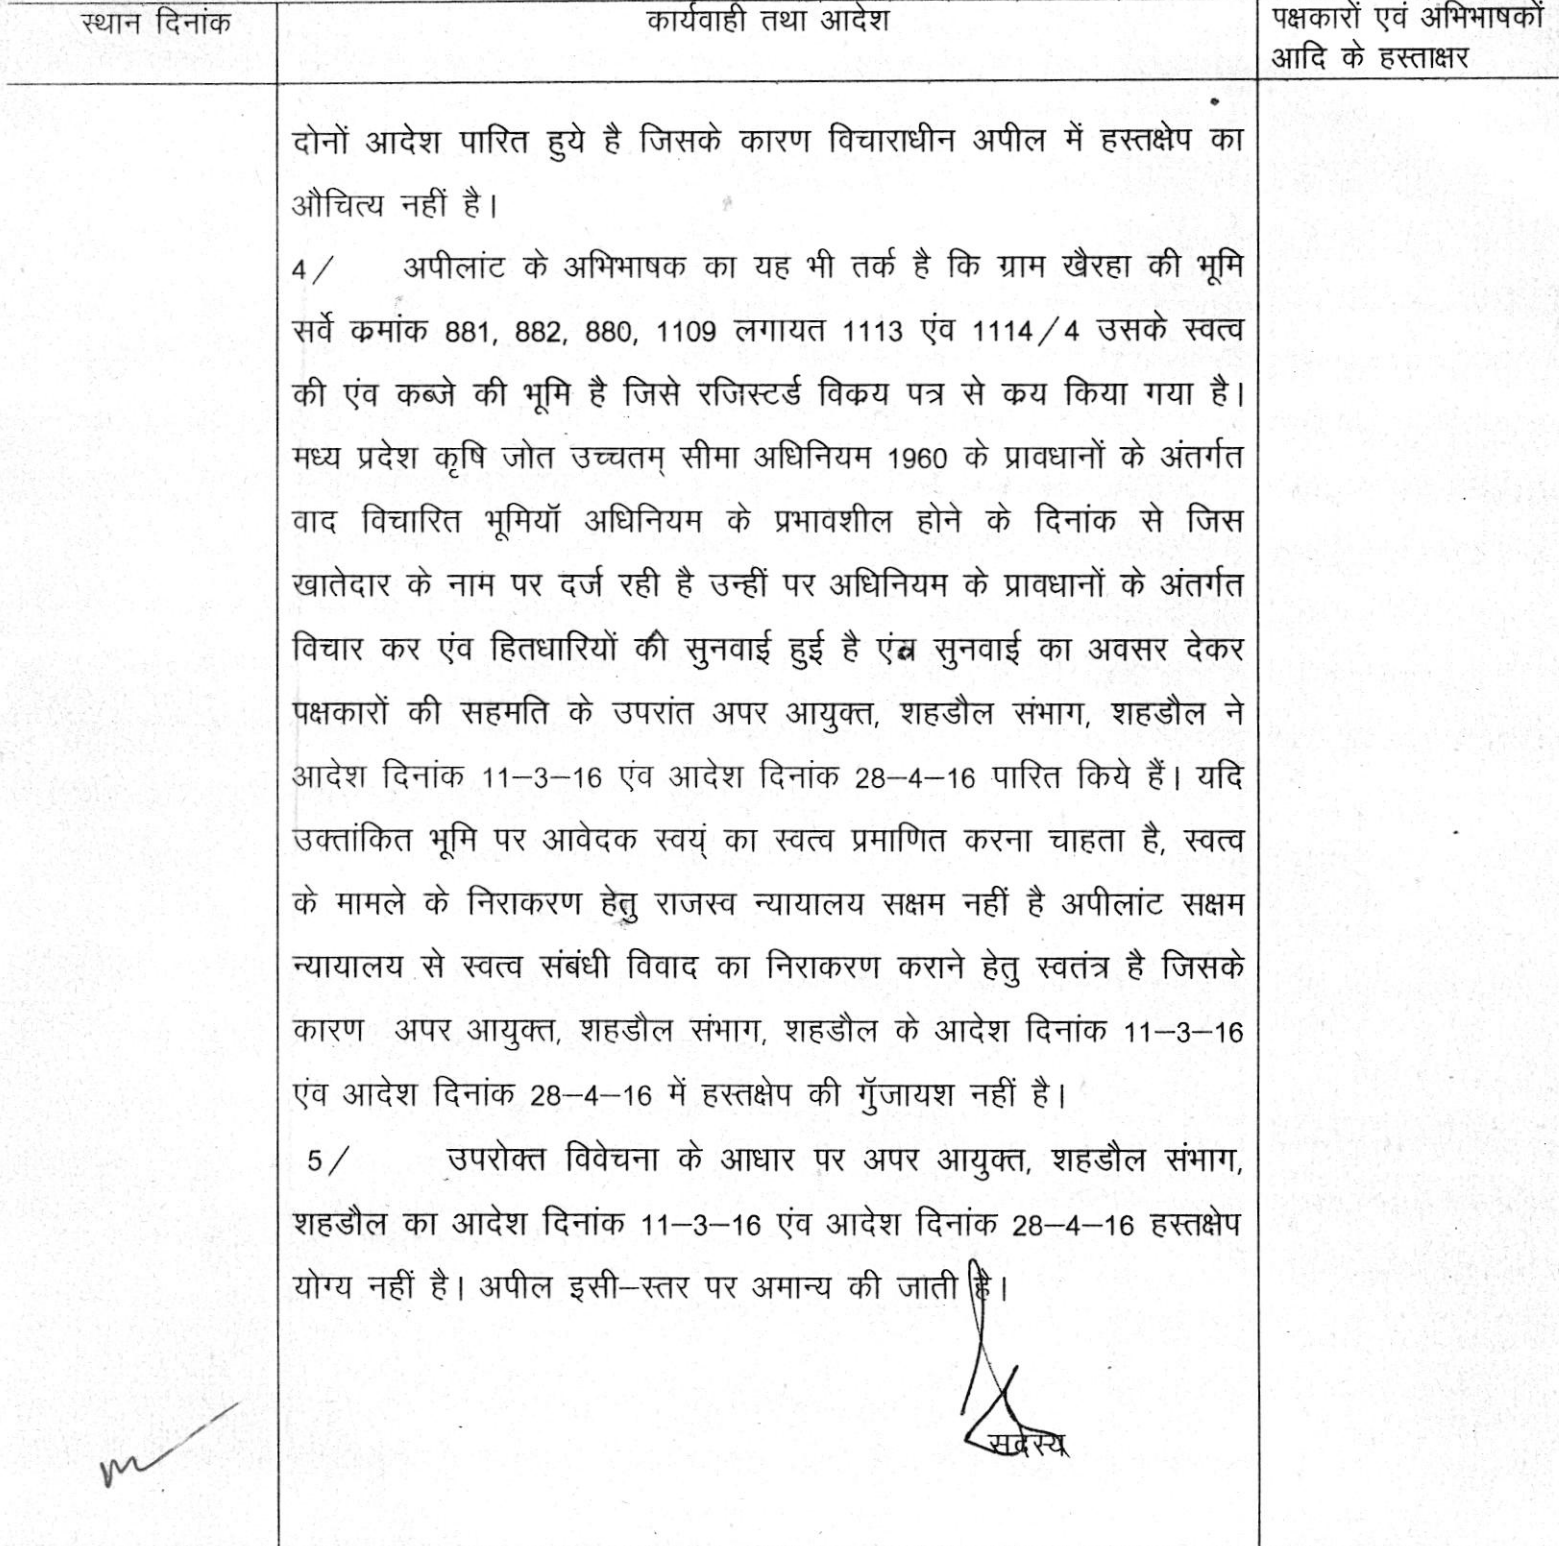 स्थान दिनांक
कार्यवाही तथा आदेश
पक्षकारों एवं अभिभाषकों
आदि के हस्ताक्षर
दोनों आदेश पारित हुये है जिसके कारण विचाराधीन अपील में हस्तक्षेप का
औचित्य नहीं है।
4/ अपीलांट के अभिभाषक का यह भी तर्क है कि ग्राम खैरहा की भूमि
सर्वे कमांक 881, 882, 880, 1109 लगायत 1113 एंव 1114/4 उसके स्वत्व
की एंव कब्जे की भूमि है जिसे रजिस्टर्ड विकय पत्र से कय किया गया है।
मध्य प्रदेश कृषि जोत उच्चतम् सीमा अधिनियम 1960 के प्रावधानों के अंतर्गत
वाद विचारित भूमियॉ अधिनियम के प्रभावशील होने के दिनांक से जिस
खातेदार के नाम पर दर्ज रही है उन्हीं पर अधिनियम के प्रावधानों के अंतर्गत
विचार कर एंव हितधारियों की सुनवाई हुई है एंव सुनवाई का अवसर देकर
पक्षकारों की सहमति के उपरांत अपर आयुक्त, शहडौल संभाग, शहडौल ने
आदेश दिनांक 11–3–16 एंव आदेश दिनांक 28–4–16 पारित किये हैं। यदि
उक्तांकित भूमि पर आवेदक स्वयं् का स्वत्व प्रमाणित करना चाहता है, स्वत्व
के मामले के निराकरण हेतु राजस्व न्यायालय सक्षम नहीं है अपीलांट सक्षम
न्यायालय से स्वत्व संबंधी विवाद का निराकरण कराने हेतु स्वतंत्र है जिसके
कारण अपर आयुक्त, शहडौल संभाग, शहडौल के आदेश दिनांक 11–3–16
एंव आदेश दिनांक 28–4–16 में हस्तक्षेप की गुॅजायश नहीं है।
5/ उपरोक्त विवेचना के आधार पर अपर आयुक्त, शहडौल संभाग,
शहडौल का आदेश दिनांक 11–3–16 एंव आदेश दिनांक 28–4–16 हस्तक्षेप
योग्य नहीं है। अपील इसी–स्तर पर अमान्य की जाती है।
सदस्य